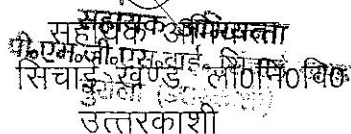 सहायक अभियन्ता
सहायक अभियन्ता
पी०एम०जी०एस०वाई०
सिंचाई खण्ड, लो०नि०वि०
उत्तरकाशी